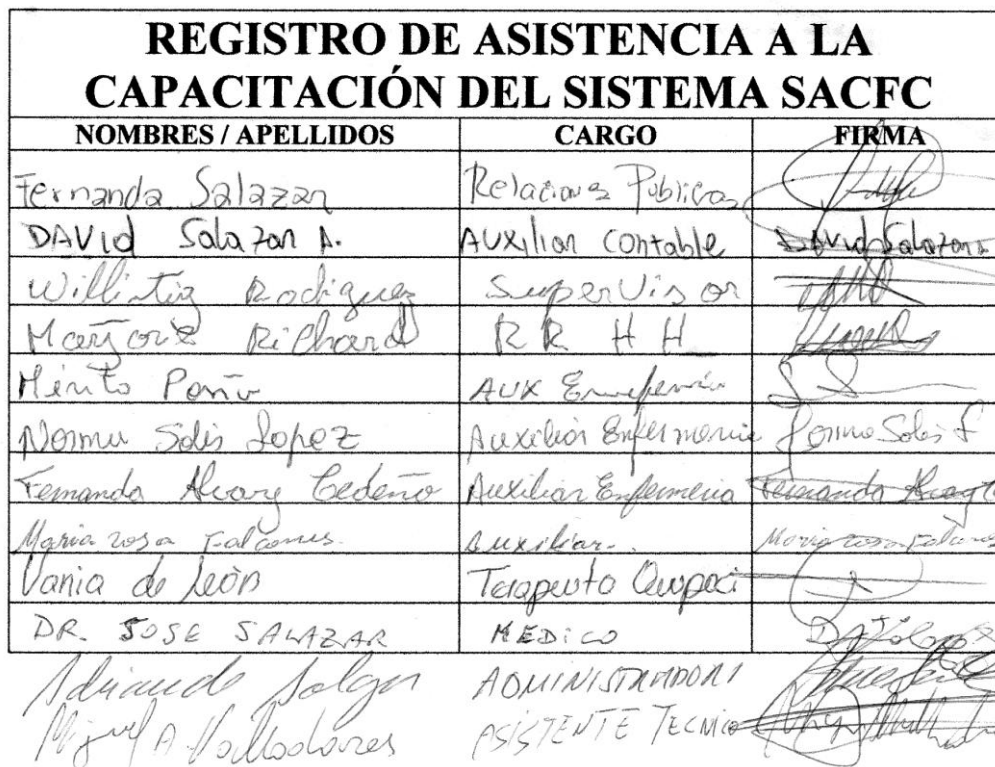 REGISTRO DE ASISTENCIA A LA
CAPACITACIÓN DEL SISTEMA SACFC
NOMBRES / APELLIDOS CARGO FIRMA
Fernanda Salazar Relaciones Publicas
DAVId Salazar A. AUXiliar contable DAVId Salazar
Rodriguez SuperVisor
Richard R R H H
AUX
Norma Solis Lopez Auxiliar Enfermeria Norma Solis L
Fernanda Cedeño Auxiliar Enfermeria Fernanda
Maria rosa Falcones. Auxiliar. Maria rosa Falcones
Vania de León Terapeuta Ocupaci
DR. JOSE SALAZAR MEDICO
ADMINISTRADORA
Miguel A. Valladares ASISTENTE TECNICO